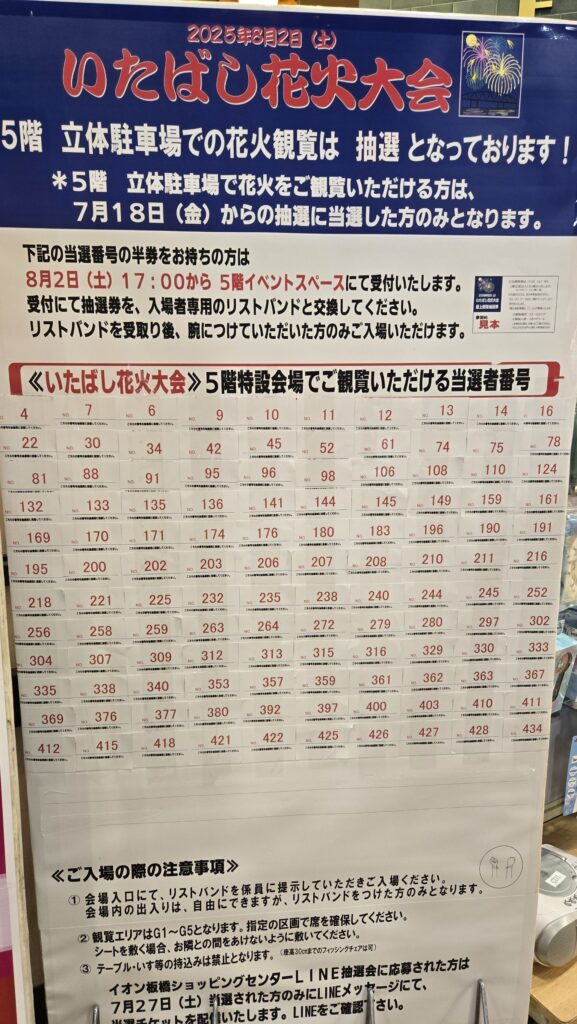 2025年8月2日（土）
いたばし花火大会
5階 立体駐車場での花火観覧は 抽選 となっております！
＊5階 立体駐車場で花火をご観覧いただける方は、
7月18日（金）からの抽選に当選した方のみとなります。
下記の当選番号の半券をお持ちの方は
8月2日（土）17：00から 5階イベントスペースにて受付いたします。
受付にて抽選券を、入場者専用のリストバンドと交換してください。
リストバンドを受取り後、腕につけていただいた方のみご入場いただけます。
見本
≪いたばし花火大会≫5階特設会場でご観覧いただける当選者番号
4 7 6 9 10 11 12 13 14 16
22 30 34 42 45 52 61 74 75 78
81 88 91 95 96 98 106 108 110 124
132 133 135 136 141 144 145 149 159 161
169 170 171 174 176 180 183 196 190 191
195 200 202 203 206 207 208 210 211 216
218 221 225 232 235 238 240 244 245 252
256 258 259 263 264 272 279 280 297 302
304 307 309 312 313 315 316 329 330 333
335 338 340 353 357 359 361 362 363 367
369 376 377 380 392 397 400 403 410 411
412 415 418 421 422 425 426 427 428 434
≪ご入場の際の注意事項≫
① 会場入口にて、リストバンドを係員に提示していただきご入場ください。
会場内の出入りは、自由にできますが、リストバンドをつけた方のみとなります。
② 観覧エリアはG1～G5となります。指定の区画で席を確保してください。
シートを敷く場合、お隣との間をあけないように敷いてください。
③ テーブル・いす等の持込みは禁止となります。（座高30cmまでのフィッシングチェアは可）
イオン板橋ショッピングセンターLINE抽選会に応募された方は
7月27日（土）当選された方のみにLINEメッセージにて、
当選チケットを配信いたします。LINEをご確認ください。